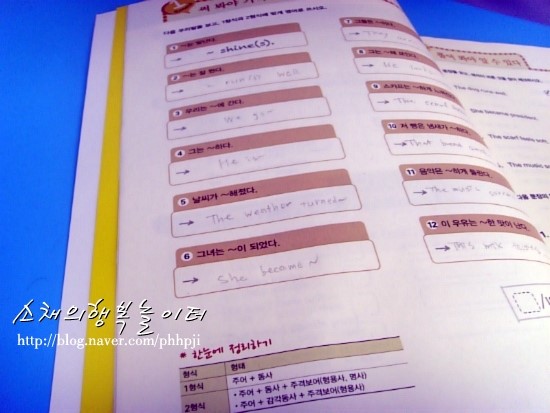 써 봐야
다음 우리말을 보고, 1형식과 2형식에 맞게 영어를 쓰시오.
1 ~는 빛난다.
→ ~ shine(s).
2 ~는 잘 한다.
→ ~ run/s well
3 우리는 ~에 간다.
→ We go ~
4 그는 ~하다.
→ He is
5 날씨가 ~해졌다.
→ The weather turned
6 그녀는 ~이 되었다.
→ She became ~
7 그들은
→ They
8 그는 ~해 보인다.
→ He looks
9 스카프는 ~하게
→ The scarf feels
10 저 빵은 냄새가 ~하다.
→ That bread
11 음악은 ~하게 들린다.
→ The music sounds
12 이 우유는 ~한 맛이 난다.
→ This milk tastes
봐야 알 수 있다
The dog runs well.
She became president.
The scarf feels soft.
The music
• 한눈에 정리하기
형식 형태
1형식 주어 + 동사
2형식 • 주어 + 동사 + 주격보어(형용사, 명사)
• 주어 + 감각동사 + 주격보어(형용사)
스채의행복놀이터
http://blog.naver.com/phhpji